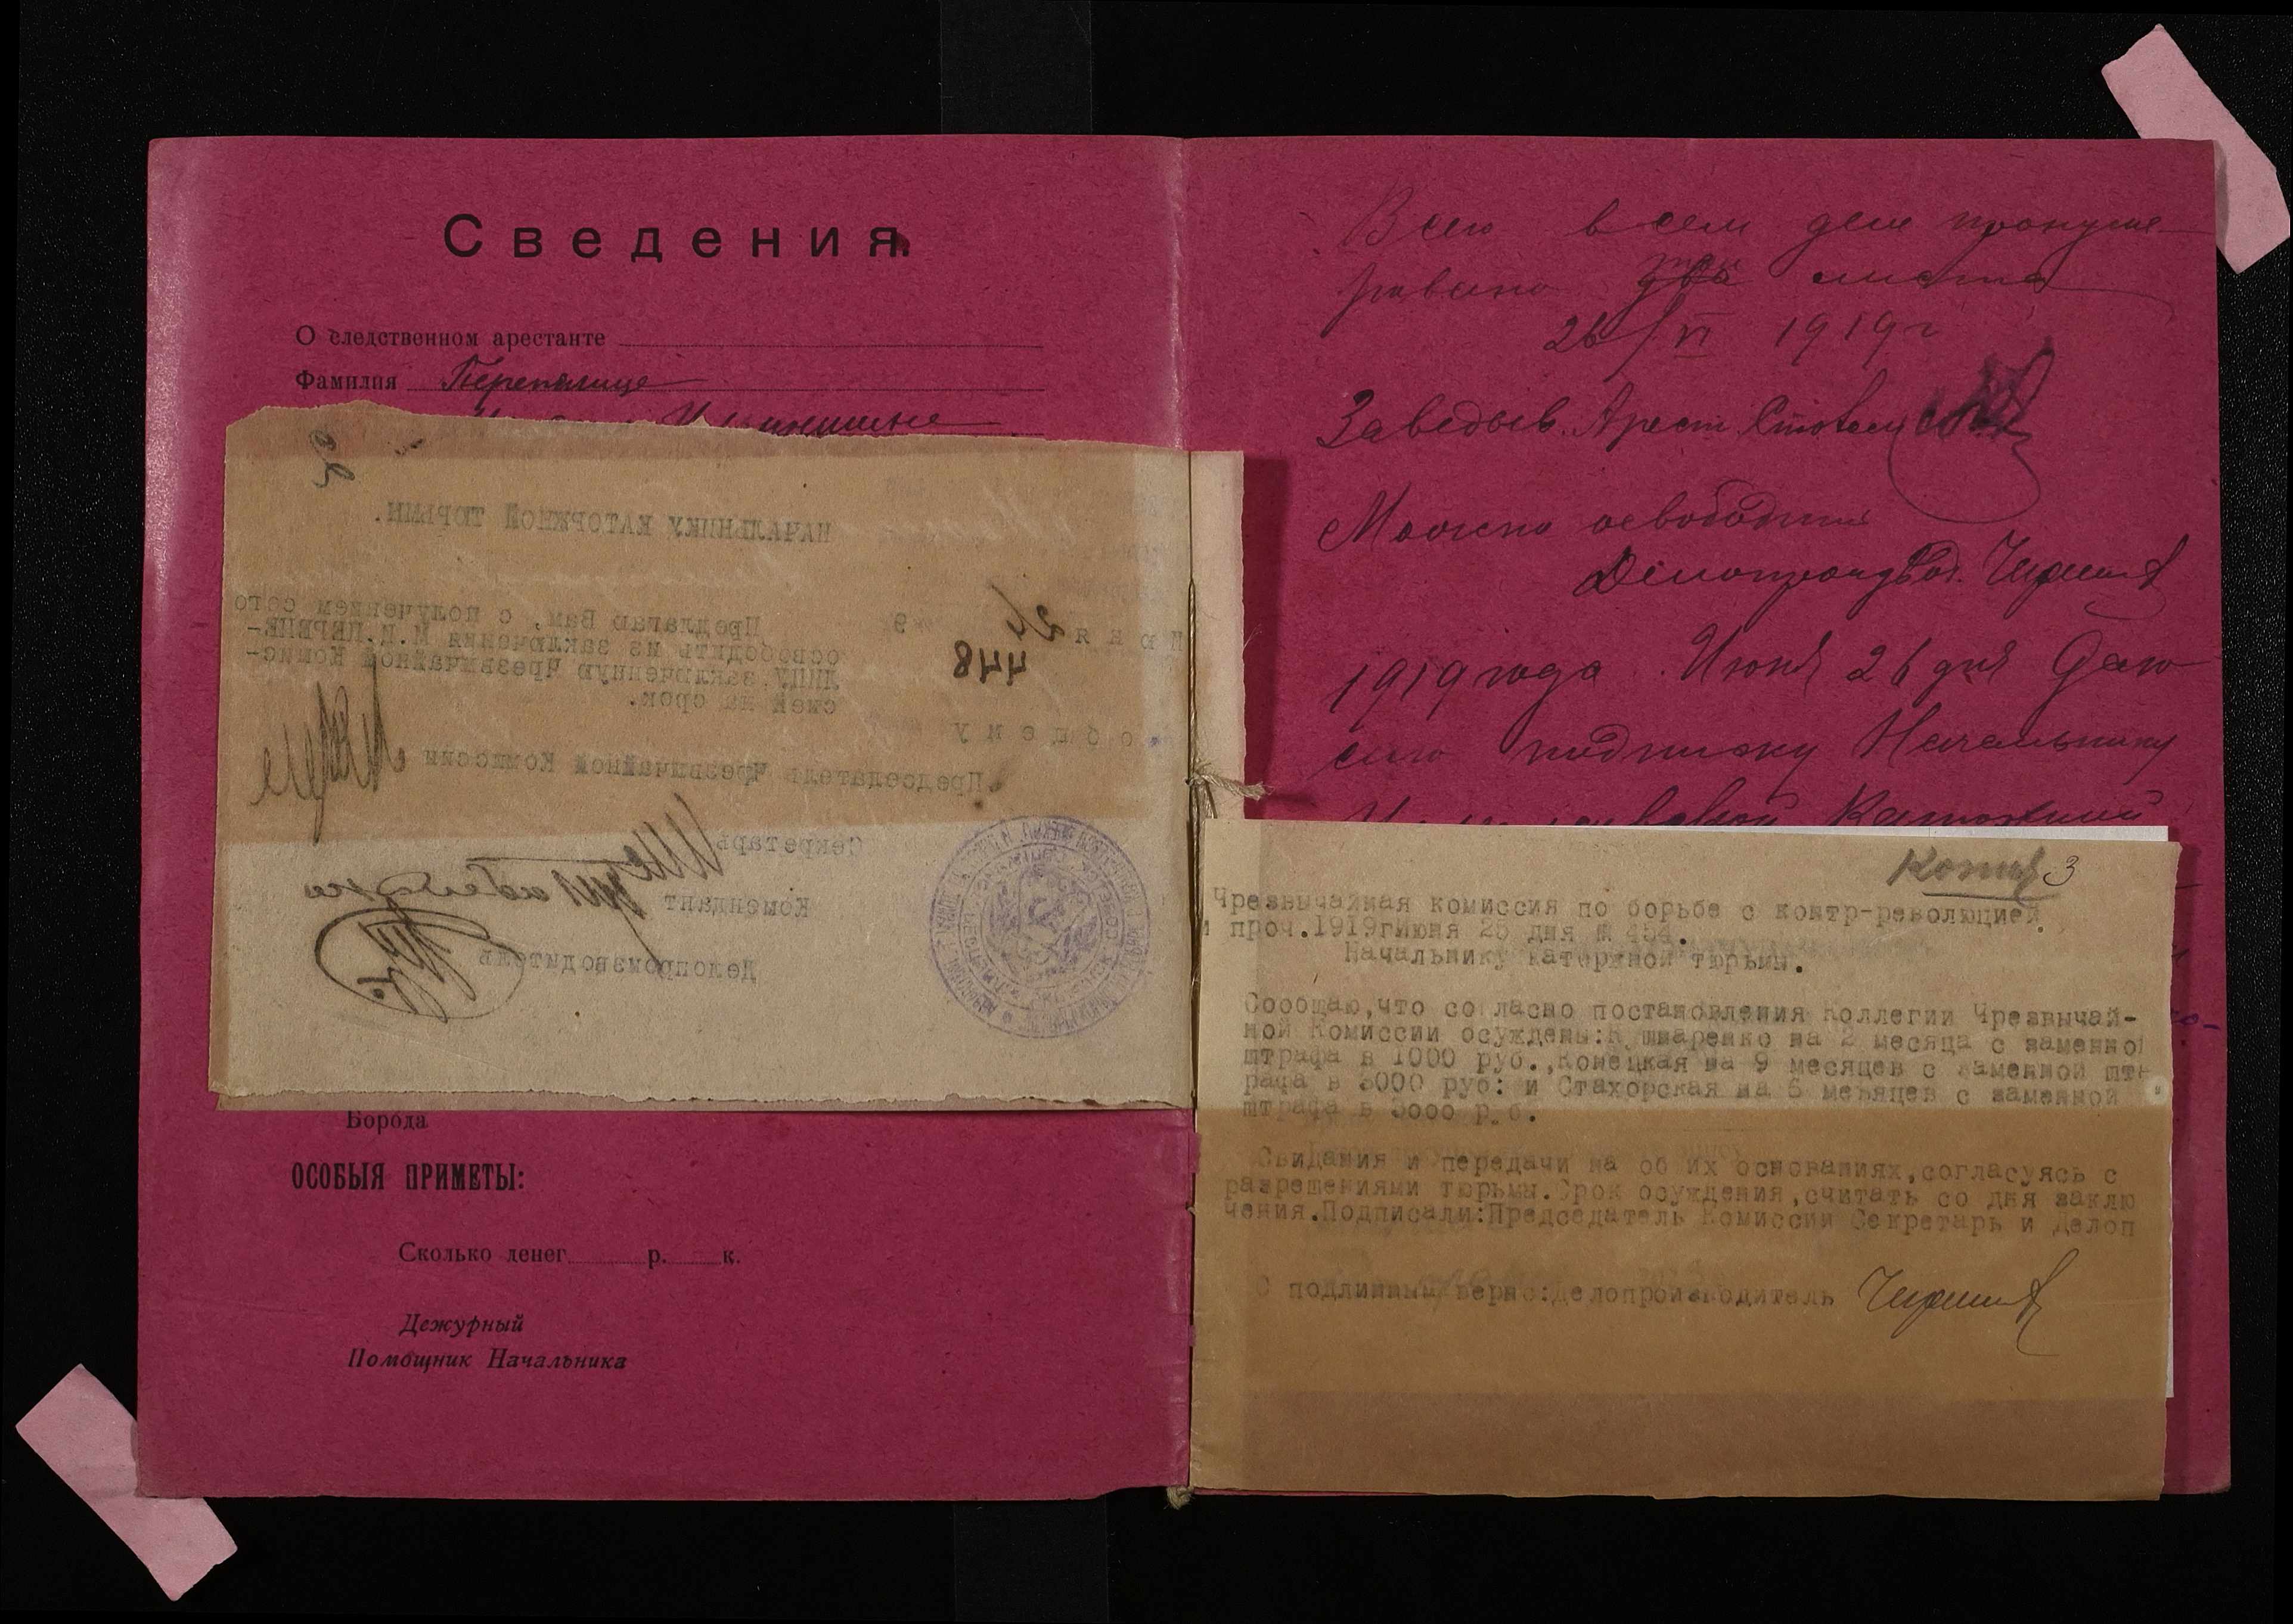 Сведения
О следственном арестанте
Фамилия Перепелице
2
НАЧАЛЬНИКУ КАТОРЖНОЙ ТЮРЬМЫ.
Июня 26 9
448
Предлагаю Вам, с получением сего
освободить из заключения М.И.ПЕРЕПЕ-
ЛИЦУ, заключенную Чрезвычайной Комис-
сией на срок.
Председатель Чрезвычайной Комиссии
Секретарь
Комендант
Делопроизводитель
Борода
ОСОБЫЯ ПРИМЕТЫ:
Сколько денег р. к.
Дежурный
Помощник Начальника
Всего в сем деле пронуме-
ровано три листа
26/VI 1919 г
Заведыв. Арест. Столом
Можно освободить
Делопроизвод.
1919 года Июня 26 дня Даю
сию подписку Начальнику
Каторжной
Копия 3
Чрезвычайная комиссия по борьбе с контр-революцией
и проч.1919гИюня 25 дня № 454.
Начальнику каторжной тюрьмы.
Сообщаю,что согласно постановления Коллегии Чрезвычай-
ной Комиссии осуждены: на 2 месяца с заменной
штрафа в 1000 руб.,Конецкая на 9 месяцев с заменной шт
рафа в 3000 руб: и Стахорская на 6 месяцев с заменной
штрафа в 3000 руб.
Свидания и передачи на об их основаниях,согласуясь с
разрешениями тюрьмы.Срок осуждения,считать со дня заклю
чения.Подписали:Председатель Комиссии Секретарь и Делоп
С подлинным верно:делопроизводитель